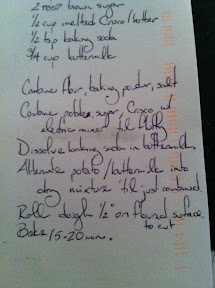 2 room brown sugar
½ cup melted Crisco/butter
½ tsp baking soda
¾ cup buttermilk
Combine flour, baking powder, salt
Combine potatoes, sugar, Crisco w/
electric mixer 'til fluffy
Dissolve baking soda in buttermilk,
Alternate potato/buttermilk into
dry mixture 'til just combined.
Roll dough ½" on floured surface
to cut
Bake 15-20 min.